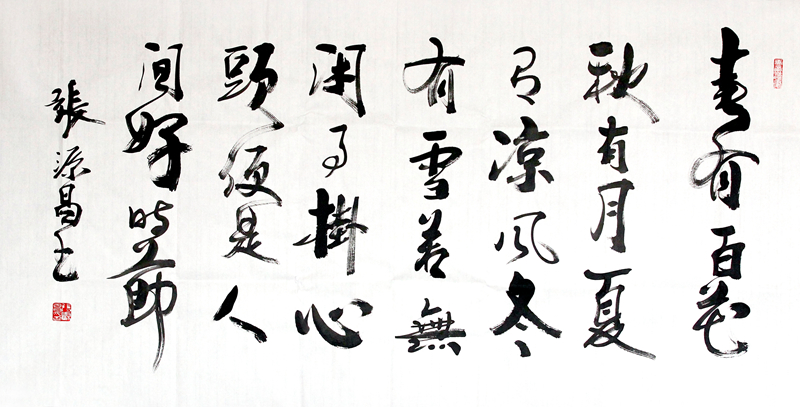 春有百花
秋有月夏
有凉风冬
有雪若無
闲事掛心
頭便是人
间好時節
張源昌书